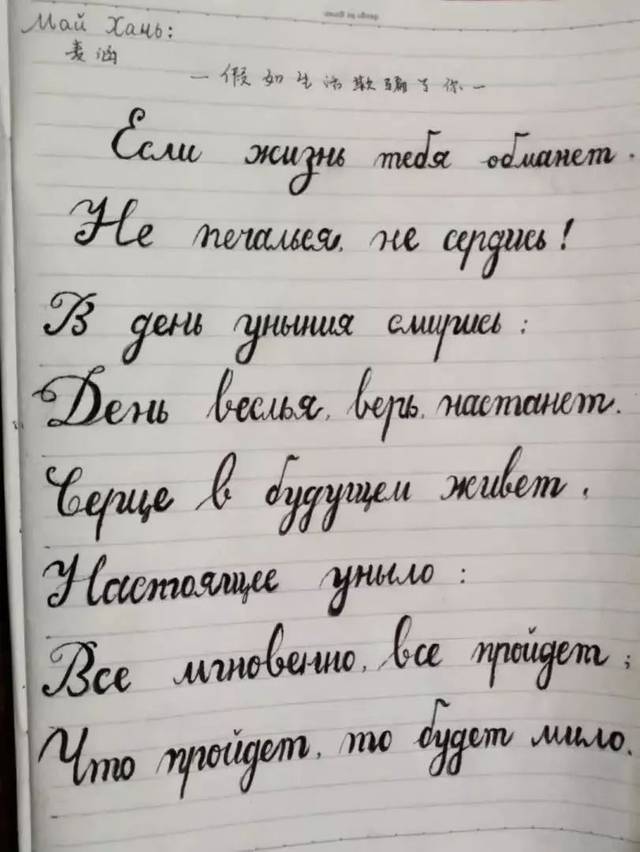 Май Хань:
麦涵
— 假如生活欺骗了你 —
Если жизнь тебя обманет.
Не печалься, не сердись!
В день уныния смирись:
День веслья, верь, настанет.
Серце в будущем живет,
Настоящее уныло:
Все мгновенно, все пройдет;
Что пройдет, то будет мило.